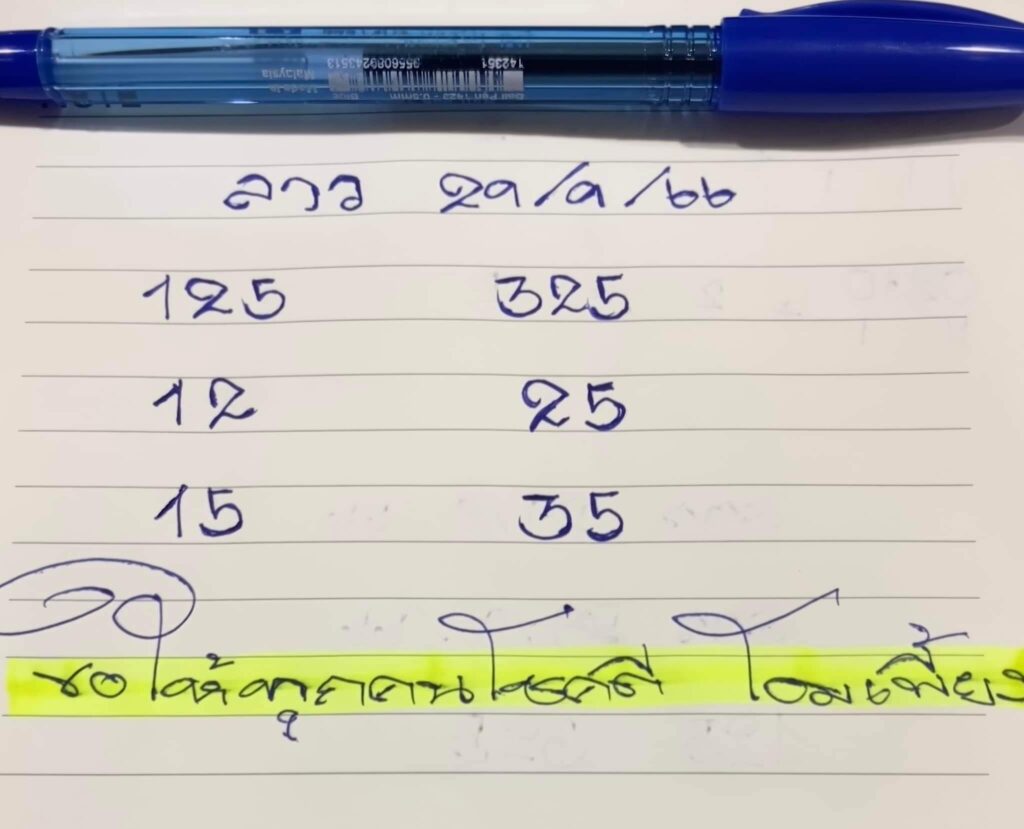 142351 9556089243513
Made in
Malaysia
ลาว 29/9/66
125 325
12 25
15 35
ขอให้ทุกคนโชคดี โอมเพี้ยง